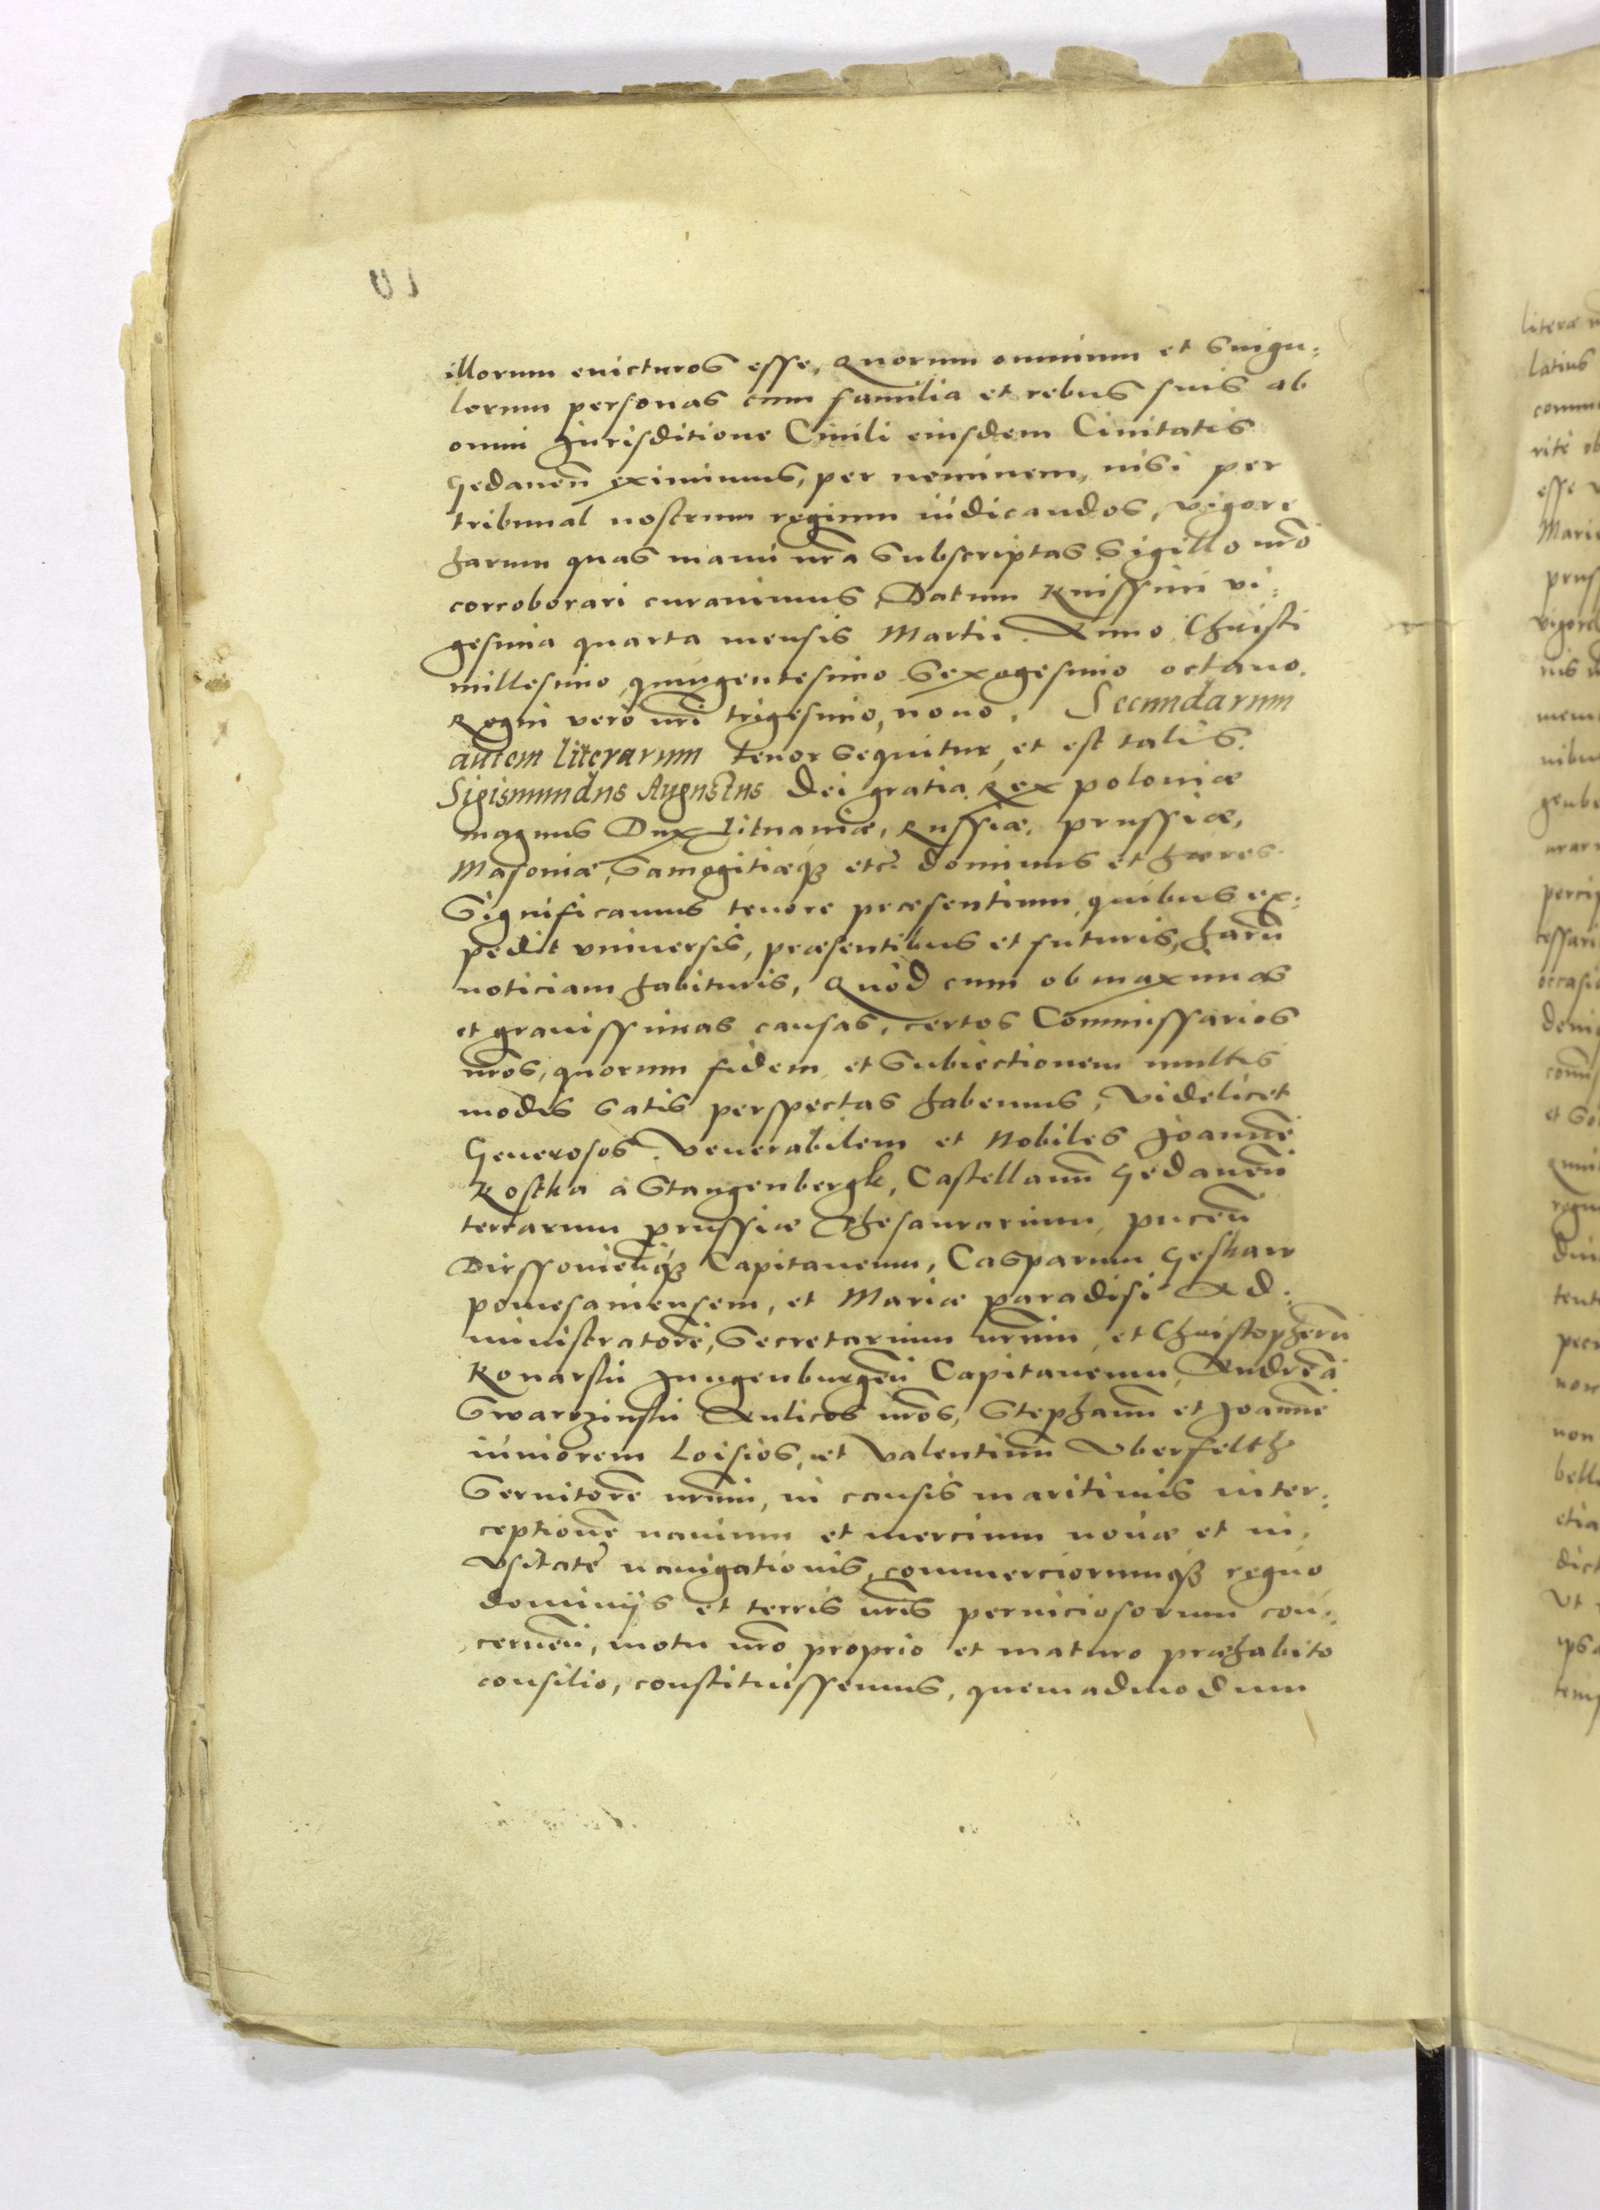 illorum euicturos esse, Quorum omnium et Singu:
lorum personas cum familia et rebus suis ab
omni Jurisditione Ciuili eiusdem Ciuitatis
Gedaneñ eximimus, per neminem, nisi per
tribunal nostrum regium iúdicandos, vigore
harum quas manú nr̃a Subscriptas Sigillo nr̃o
corroborari curauimus, Datum Knissini vi:
gesima quarta mensis Martii. Anno Christi
millesimo quingentesimo Sexagesimo octauo.
Regni verò nr̃i trigesimo, nono. Secundarum
autem literarum tenor Sequitur, et est talis.
Sigismundus Augustus Dei gratia Rex poloniæ
magnus Dux Lituaniæ, Russiæ, prussiæ,
Masouiæ, Samogitiæq3 etc̃ dominus et hæres.
Significamus tenore præsentium quibus ex:
pedit vniuersis, præsentibus et futuris, harũ
noticiam habituris, Quòd cum ob maximas
et grauissimas causas, certos Commissarios
nr̃os, quorum fidem et Subiectionem multis
modis satis perspectas habemus, Videlicet
Generosos Venerabilem et Nobiles Joannẽ
Kostka à Stangenbergk, Castellanũ Gedaneñ
terrarum prussiæ Thesaurarium, puceñ
Dirssouieñq3 Capitaneum, Casparum Geskaw
pomesaniensem, et Mariæ paradisi Ad:
ministratorẽ, Secretarium nr̃um, et Christopherũ
Konarski Jungenburgeñ Capitaneum, Andreã
Swarozinski Aulicos nr̃os, Stephanũ et Joannẽ
iuniorem Loisios, et Valentinũ Vberfelth
Seruitorẽ nr̃um, in causis maritimis inter:
ceptionẽ nauium et mercium nouæ et in:
vsitatè nauigationis, commerciorumq3 regno
dominijs et terris nr̃is perniciosorum con:
cerneñ, motu nr̃o proprio et maturo præhabito
consilio, constituissemus, quemadmodum